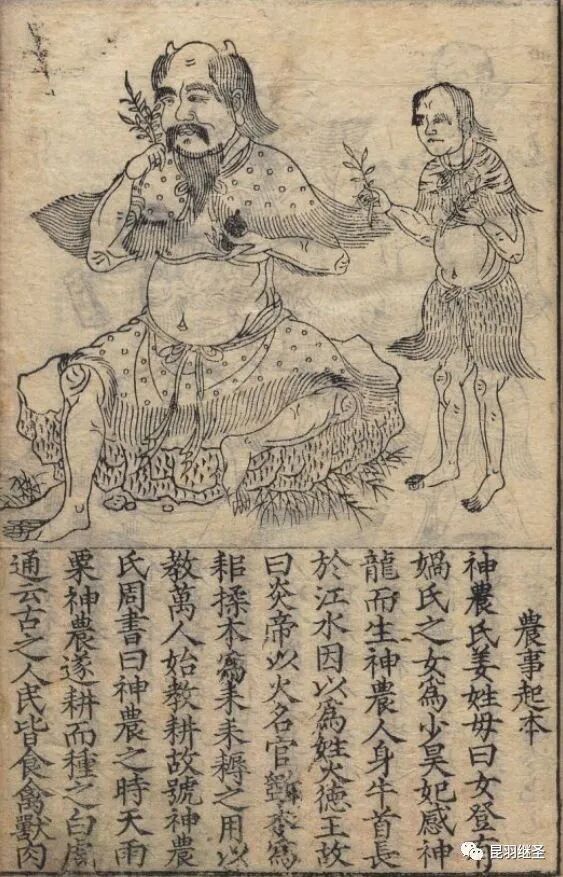 農事起本
神農氏姜姓母曰女登有
媧氏之女為少昊妃感神
龍而生神農人身牛首長
於江水因以為姓火德王故
曰炎帝以火名官木為
耜揉木為耒耒耨之用以
教萬人始教耕故號神農
氏周書曰神農之時天雨
粟神農遂耕而種之白虎
通云古之人民皆食禽獸肉
昆羽继圣